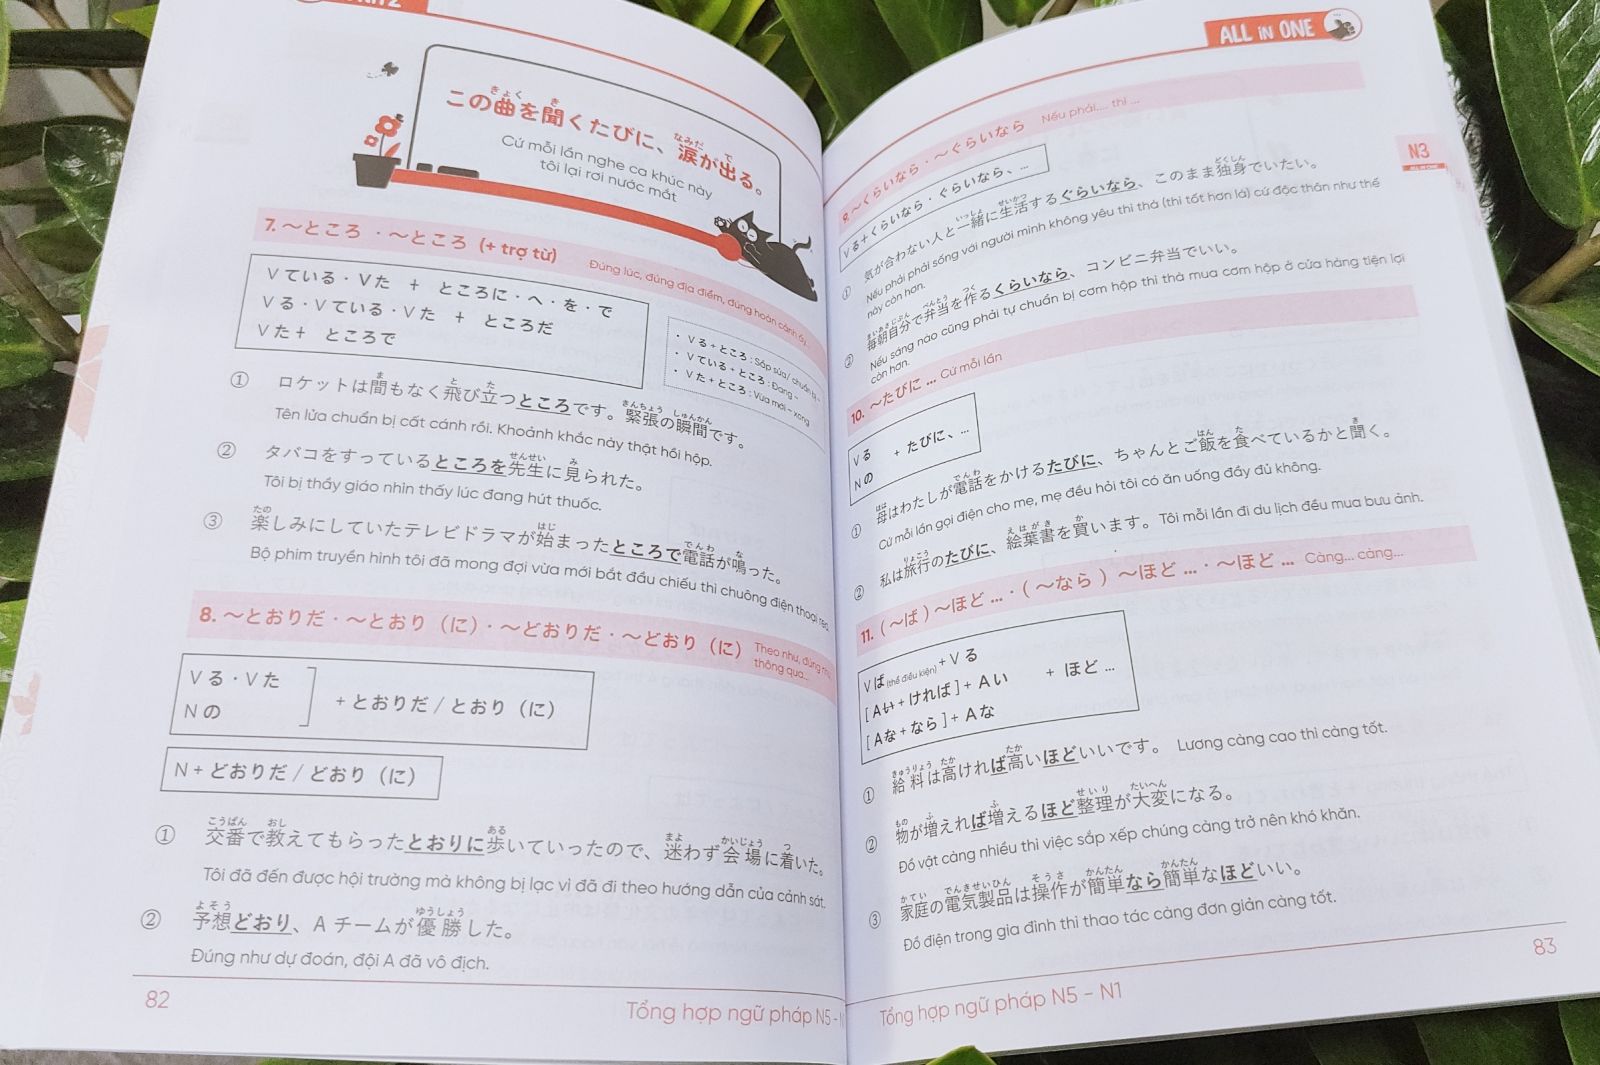 この曲を聞くたびに、涙が出る。
Cứ mỗi lần nghe ca khúc này
tôi lại rơi nước mắt
7. ～ところ ・～ところ (+ trợ từ) Đúng lúc, đúng địa điểm, đúng hoàn cảnh ấy...
Vている・Vた + ところに・へ・を・で
Vる・Vている・Vた + ところだ
Vた+ ところで
• Vる+ところ : Sắp sửa/ chuẩn bị ~
• Vている+ところ : Đang ~
• Vた+ところ : Vừa mới ~ xong
① ロケットは間もなく飛び立つところです。緊張の瞬間です。
Tên lửa chuẩn bị cất cánh rồi. Khoảnh khắc này thật hồi hộp.
② タバコをすっているところを先生に見られた。
Tôi bị thầy giáo nhìn thấy lúc đang hút thuốc.
③ 楽しみにしていたテレビドラマが始まったところで電話が鳴った。
Bộ phim truyền hình tôi đã mong đợi vừa mới bắt đầu chiếu thì chuông điện thoại reo.
8. ～とおりだ・～とおり（に）・～どおりだ・～どおり（に） Theo như, đúng như,
thông qua...
Vる・Vた
Nの
+ とおりだ / とおり（に）
N + どおりだ / どおり（に）
① 交番で教えてもらったとおりに歩いていったので、迷わず会場に着いた。
Tôi đã đến được hội trường mà không bị lạc vì đã đi theo hướng dẫn của cảnh sát.
② 予想どおり、Aチームが優勝した。
Đúng như dự đoán, đội A đã vô địch.
82
Tổng hợp ngữ pháp N5 - N
ALL IN ONE
N3
9. ～くらいなら・～ぐらいなら Nếu phải.... thì ...
Vる+くらいなら・ぐらいなら、...
① 気が合わない人と一緒に生活するぐらいなら、このまま独身でいたい。
Nếu phải phải sống với người mình không yêu thì thà (thì tốt hơn là) cứ độc thân như thế
này còn hơn.
② 毎朝自分で弁当を作るくらいなら、コンビニ弁当でいい。
Nếu sáng nào cũng phải tự chuẩn bị cơm hộp thì thà mua cơm hộp ở cửa hàng tiện lợi
còn hơn.
10. ～たびに ... Cứ mỗi lần
Vる
Nの
+ たびに、...
① 母はわたしが電話をかけるたびに、ちゃんとご飯を食べているかと聞く。
Cứ mỗi lần gọi điện cho mẹ, mẹ đều hỏi tôi có ăn uống đầy đủ không.
② 私は旅行のたびに、絵葉書を買います。Tôi mỗi lần đi du lịch đều mua bưu ảnh.
11. (～ば)～ほど ...・(～なら) ～ほど ...・～ほど ... Càng... càng...
Vば (thể điều kiện) + Vる
[Aい + ければ] + Aい
[Aな + なら] + Aな
+ ほど ...
① 給料は高ければ高いほどいいです。 Lương càng cao thì càng tốt.
② 物が増えれば増えるほど整理が大変になる。
Đồ vật càng nhiều thì việc sắp xếp chúng càng trở nên khó khăn.
③ 家庭の電気製品は操作が簡単なら簡単なほどいい。
Đồ điện trong gia đình thì thao tác càng đơn giản càng tốt.
83
Tổng hợp ngữ pháp N5 - N1